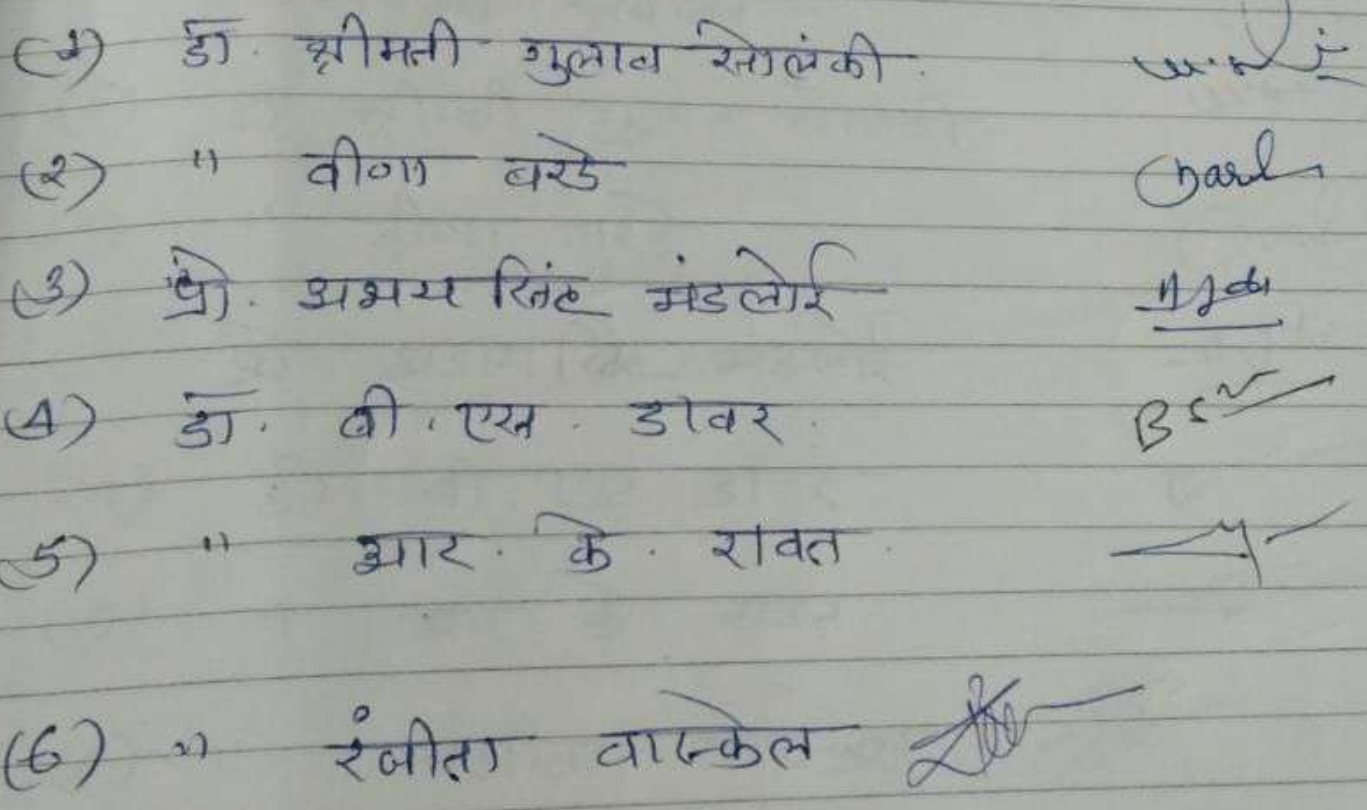 (1) डॉ. श्रीमती गुलाब सोलंकी
(2) " वीणा बरडे
(3) प्रो. अभय सिंह मंडलोई
(4) डॉ. बी. एस. डावर
(5) " आर. के. रावत
(6) " रंजीता वास्केल